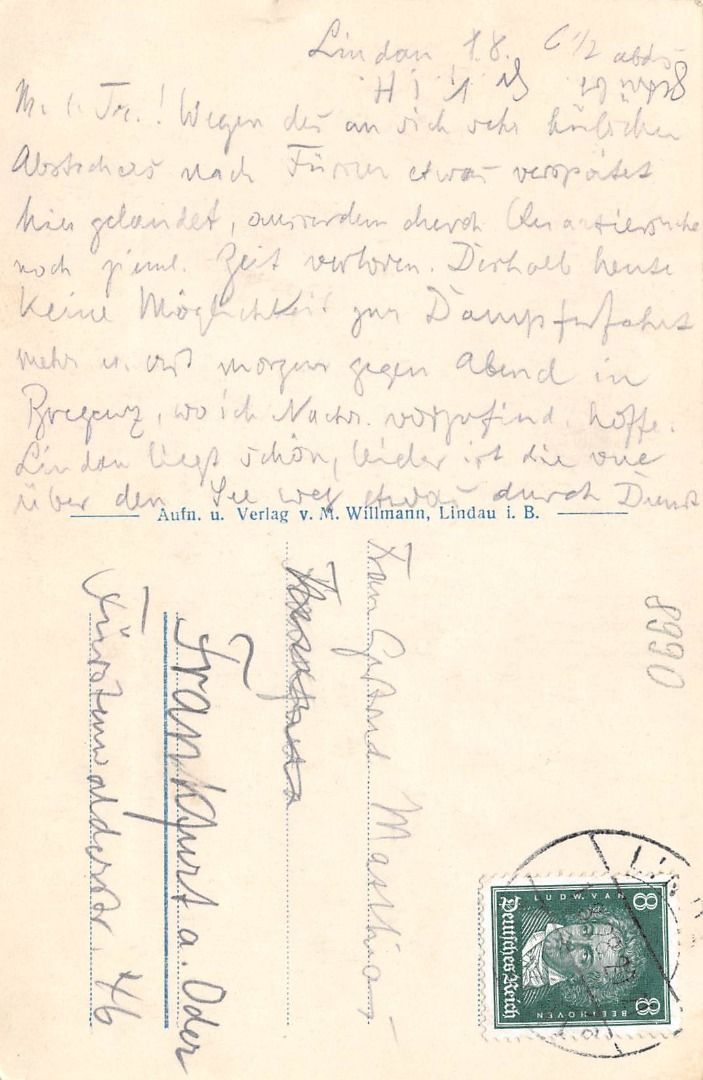 Lindau 1.8. 6 1/2 abds
M. l. Tr.! Wegen des an sich sehr hübschen
Abstechers nach Füssen etwas verspätet
hier gelandet, ausserdem durch Quartiersuche
noch zieml. Zeit verloren. Deshalb heute
keine Möglichkeit zur Dampferfahrt
mehr u. erst morgen gegen Abend in
Bregenz, wo ich Nachr. vorzufind. hoffe.
Lindau liegt schön, leider ist die
über den See weg etwas durch Dunst
Aufn. u. Verlag v. M. Willmann, Lindau i. B.
Frau Gertrud Matthias
Frankfurt a. Oder
Fürstenwalderstr. 46
8990
LUDW. VAN
BEETHOVEN
Deutsches Reich
8
8